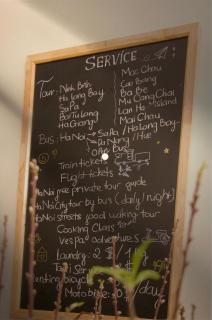 SERVICE :
Tour: Ninh Binh
Ha Long Bay
SaPa
Bai Tu Long
Ha Giang
Moc Chau
Cao Bang
Ba Be
Mu Cang Chai
Lan Ha Island
Mai Chau
Bus: Ha Noi → SaPa / Ha Long Bay
Ninh Binh / Hue
Open Bus
Train tickets
Flight tickets
Ha Noi free private tour guide
Ha Noi City tour by bus (daily/night)
Ha Noi streets food walking tour
Cooking Class
Vespa adventures
Laundry: 2 $ / 1
Taxi
Renting bicycle
Motobike: /day